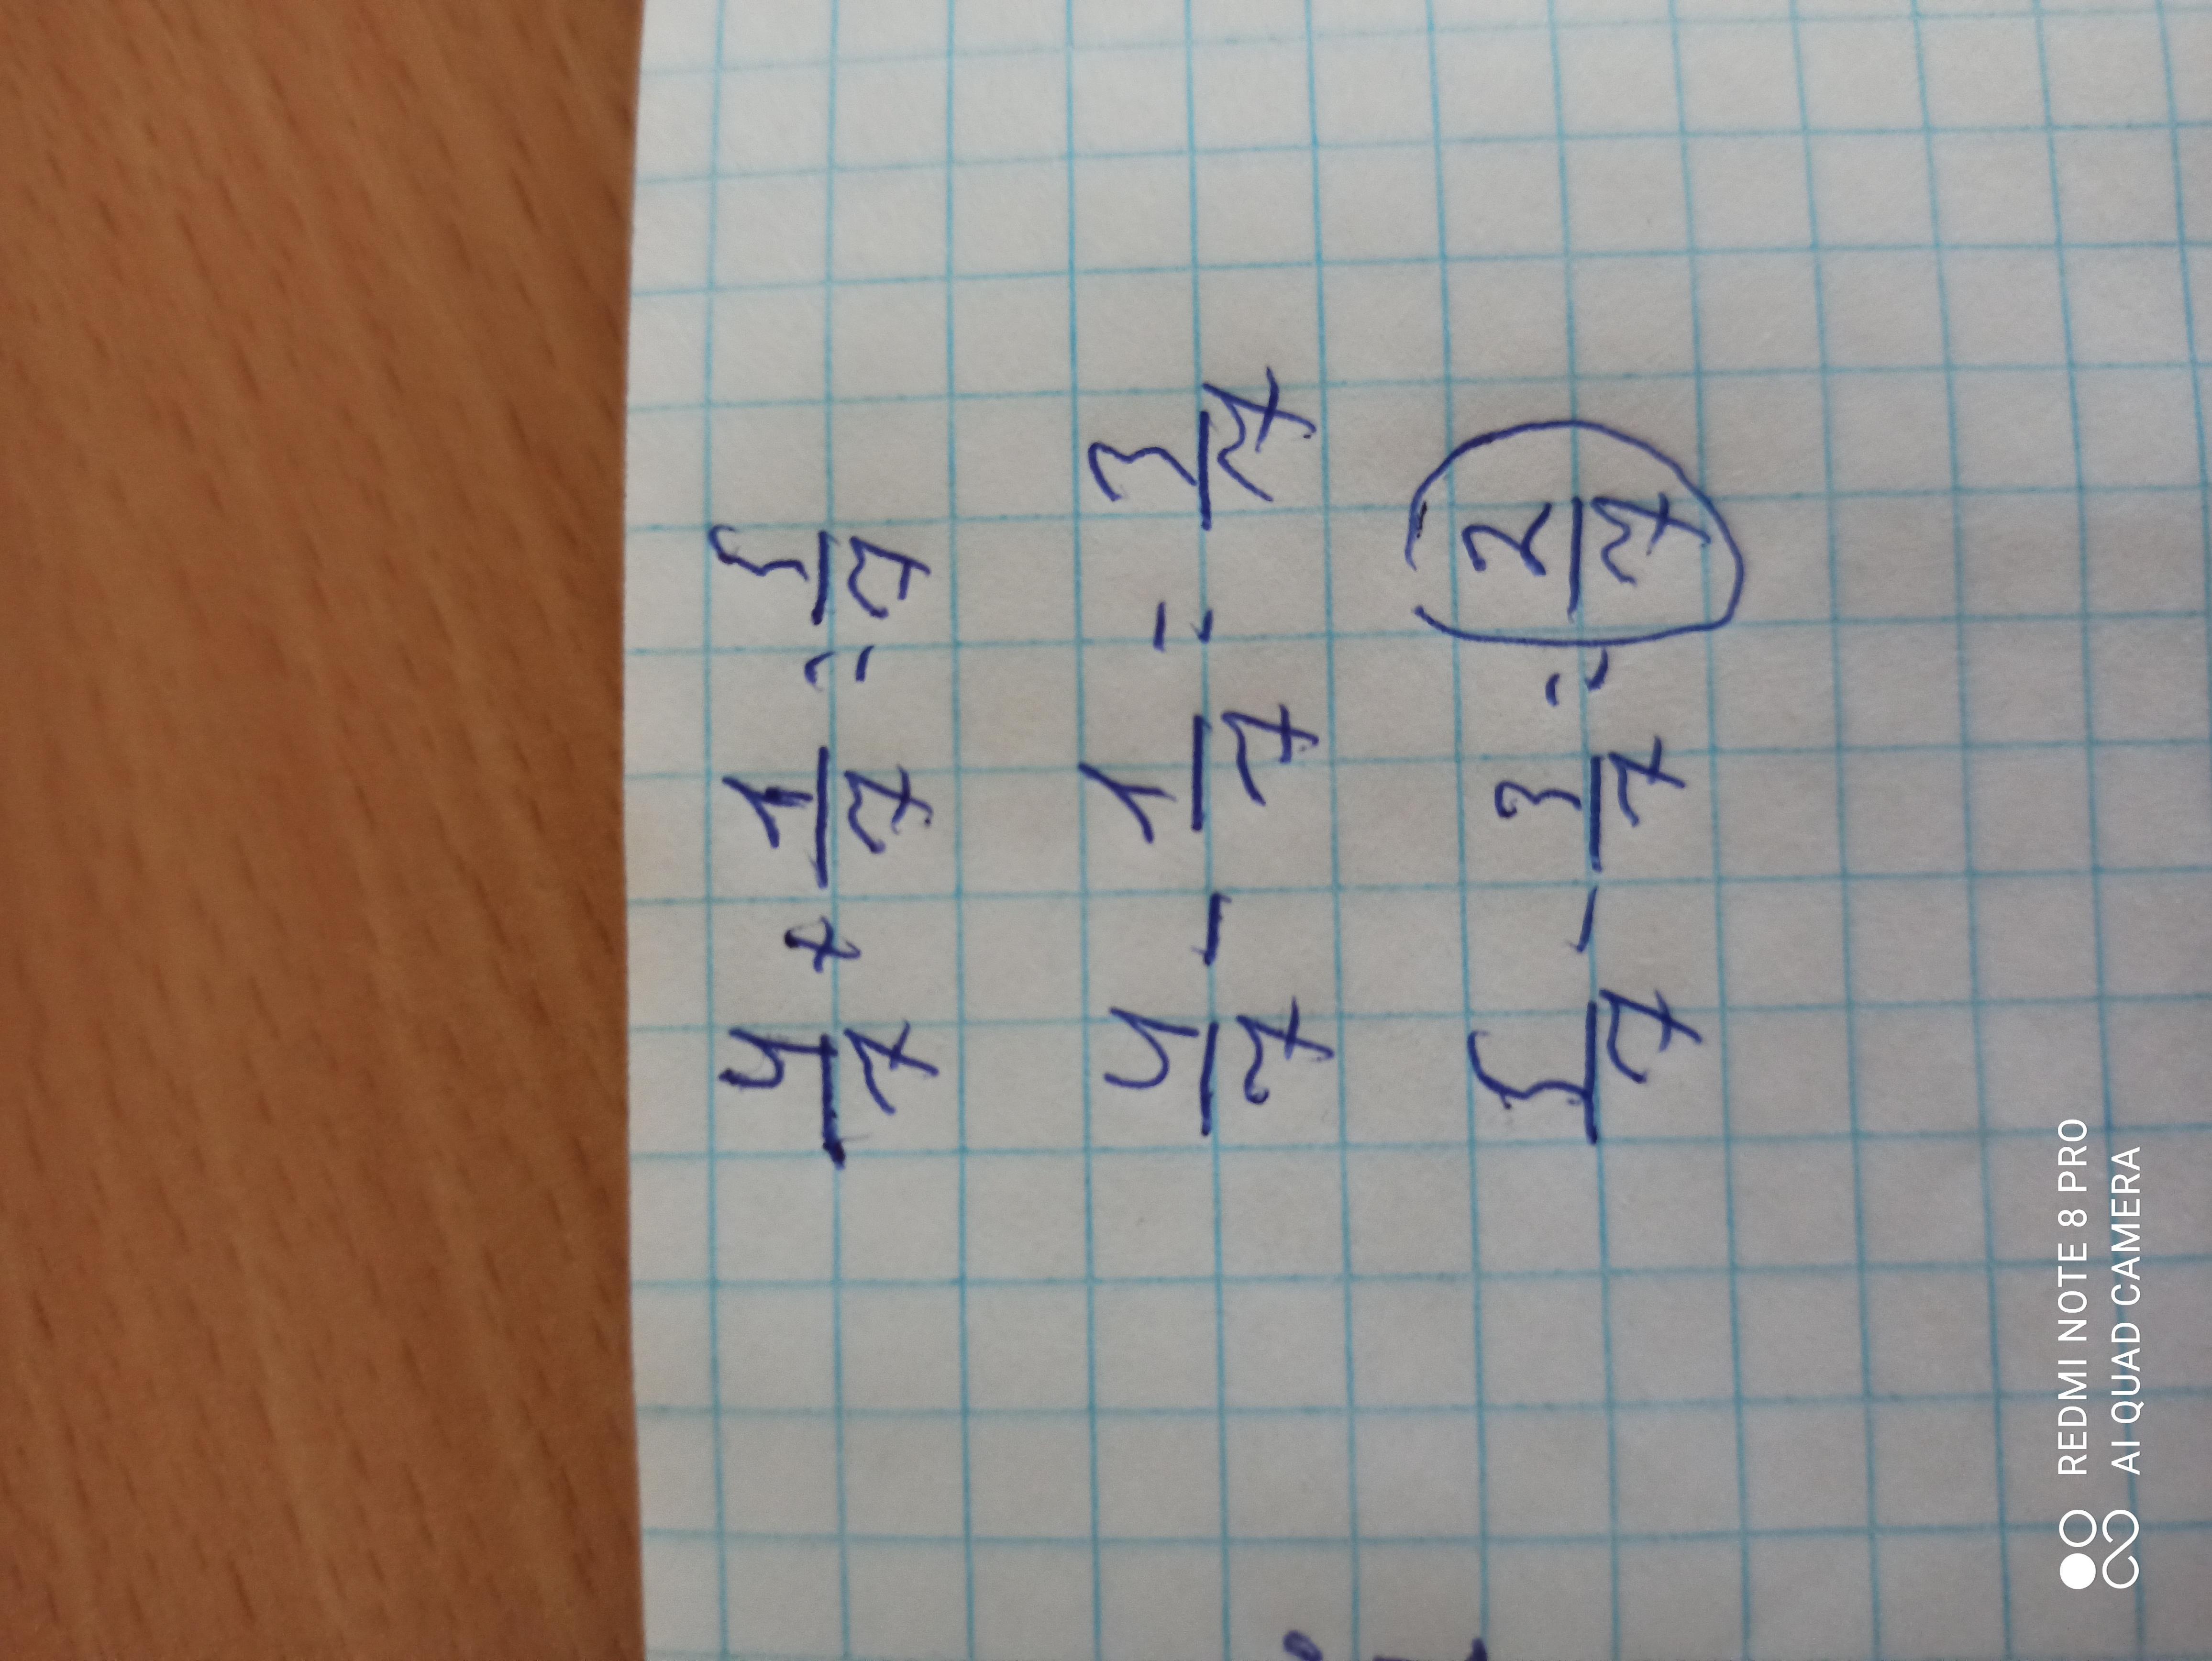 4/7 + 1/7 = 5/7
4/7 - 1/7 = 3/7
5/7 - 3/7 = 2/7
REDMI NOTE 8 PRO
AI QUAD CAMERA